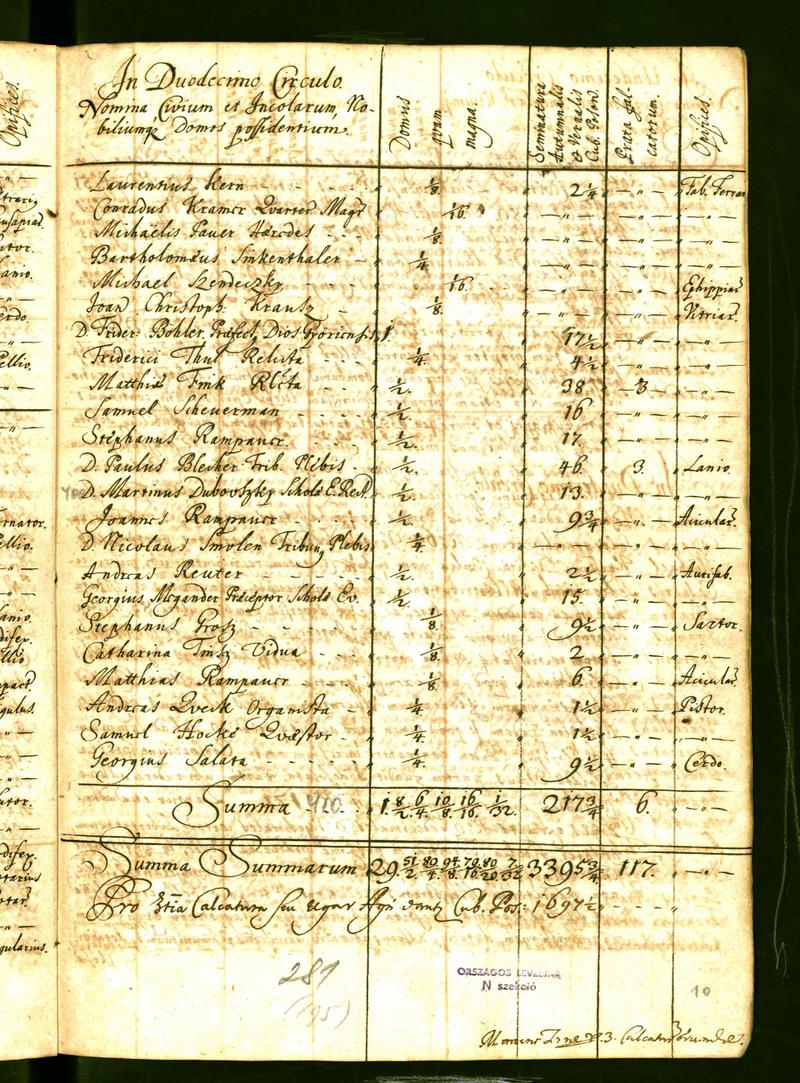 In Duodecimo Circulo.
Nomina Civium et Incolarum, No-
biliumqz Domos possidentium.
Domus quam magna.
Seminatura Autumnalis & Vernalis Cub. Poson.
Prata falcatorum.
Opifices.
Laurentius Kern - - - 1/8. 2 1/4 — „ — Fab. Ferrar
Conradus Kramer Quarter Magr 1/16. — „ — — „ — — „ —
Michaelis Pauer Hæredes - - - 1/8. — „ — — „ — — „ —
Bartholomæus Sinkenthaler - 1/4. — „ — — „ — — „ —
Michael Szendeczky - - 1/16. — „ — — „ — Ephippiar
Joan Christoph: Krausz - 1/8. — „ — — „ — Vitriar.
D. Frider: Böhler Præfect Dios Györiens: 1. 17 1/2 — „ — — „ —
Friderici Thut Relicta - - - 1/4. 4 1/2 — „ — — „ —
Matthiæ Fink Rlcta - - - 1/2. 38 3 — „ —
Samuel Scheuerman - - - - 1/2. 16 — „ — — „ —
Stephanus Rampauer - - - 1/2. 17 — „ — — „ —
D. Paulus Blecher Trib. Plebis - 1/2. 46. 3. Lanio.
D. Martinus Dubovszky Scholæ E. Rect. 1/2. 13. — „ — — „ —
Joannes Rampauer - - - 1/2. 9 3/4 — „ — Acicular.
D. Nicolaus Smolen Tribun Plebis 1/4. — „ — — „ — — „ —
Andreas Reuter - - - - 1/2. 2 1/2 — „ — Aurifab.
Georgius Megander Præceptor Scholæ Ev. 1/2. 15. — „ — — „ —
Stephanus Grosz - - - - 1/8. 9 1/2 — „ — Sartor.
Catharina Vidua - - 1/8. 2 — „ — — „ —
Matthias Rampauer - - - 1/8. 6. — „ — Acicular
Andreas Qveck Organista - 1/4. 1 1/2 — „ — Pistor.
Samuel Hocke Qvæstor - 1/4. 1 1/2 — „ — — „ —
Georgius Salata - - - - - 1/4. 9 1/2 — „ — Cerdo.
Summa 1. 8/2. 6/4. 10/8. 16/16. 1/32. 217 3/4 6. — „ —
Summa Summarum 29. 51/2. 80/4. 94/8. 79/16. 80/20. 7/32. 3395 3/4 117. — „ —
Pro 3tia Calcatura seu Ugar Agri Cub. Pos: 1697 1/2 - - - „
281
(195)
ORSZÁGOS LEVÉLTÁR
N szekció
10